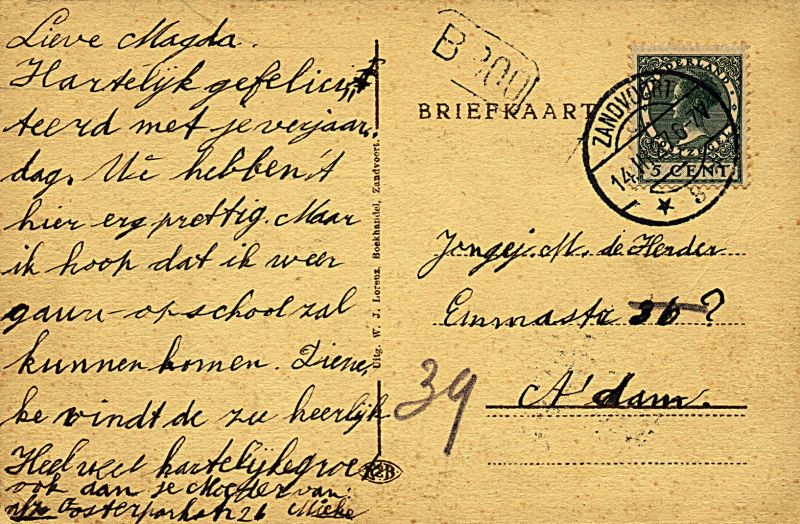 Lieve Magda.
Hartelijk gefelici„
teerd met je verjaar„
dag. We hebben 't
hier erg prettig. Maar
ik hoop dat ik weer
gauw op school zal
kunnen komen. Liene„
ke vindt de zee heerlijk
Heel veel hartelijke groe
ook dan je Moeder van
Oosterparkstr 26 Mieke
Uitg. W. J. Lorenz, Boekhandel, Zandvoort.
B 200
BRIEFKAART
NEDERLAND
POSTZEGEL
5 CENT
ZANDVOORT
14
6-7N
Jongej. M. de Herder
Emmastr 36?
39
A'dam.